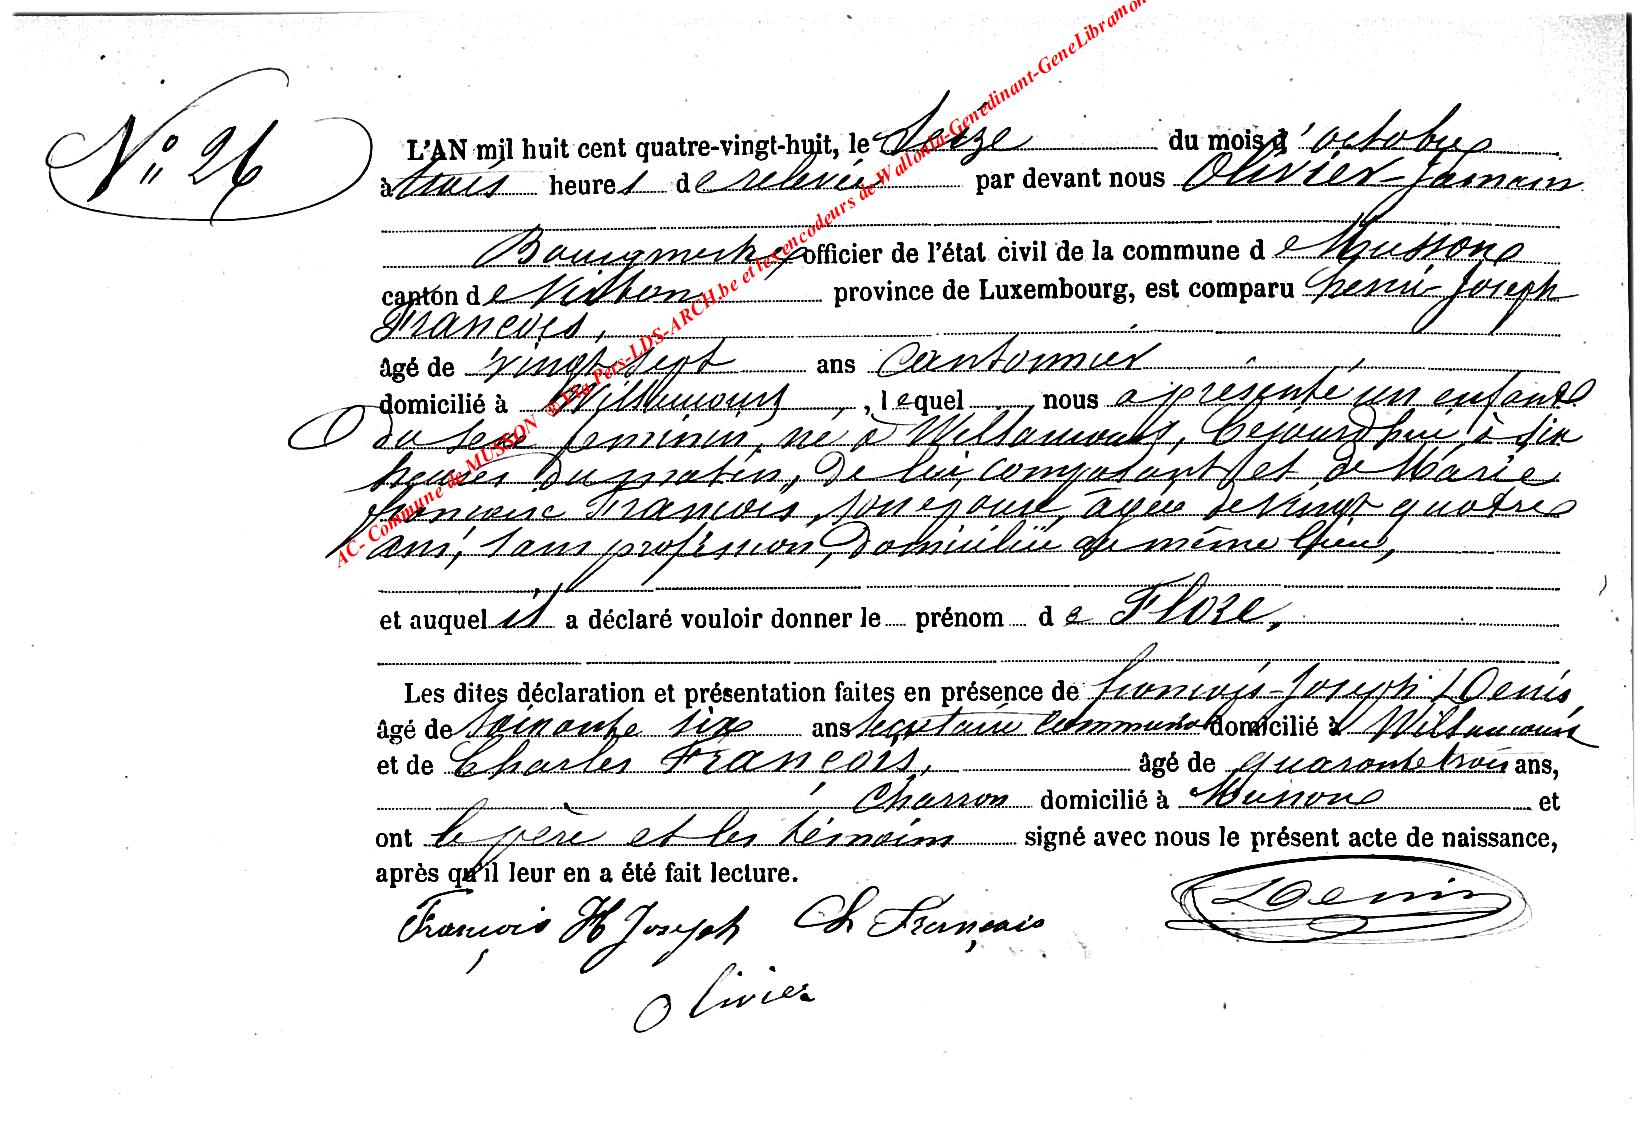 N° 26
L'AN mil huit cent quatre-vingt-huit, le seize du mois d'octobre
à trois heures de relevée par devant nous Olivier Jamain
Bourgmestre officier de l'état civil de la commune de Musson
canton de Virton province de Luxembourg, est comparu henri-Joseph
François,
âgé de vingt sept ans cantonnier
domicilié à Willancourt, lequel nous a présenté un enfant
du sexe féminin, né à Willancourt, cejourdhui à six
heures du matin, de lui comparant et de Marie
françoise François, son épouse, âgée de vingt quatre
ans, sans profession, domiciliée au même lieu,
et auquel il a déclaré vouloir donner le prénom de Flore,
Les dites déclaration et présentation faites en présence de françois-Joseph Denis
âgé de soixante six ans secrétaire communal domicilié à Willancourt
et de Charles François, âgé de quarante trois ans,
charron domicilié à Musson et
ont le père et les témoins signé avec nous le présent acte de naissance,
après qu'il leur en a été fait lecture.
François H Joseph Ch François Denis
Olivier
AC- Commune de MUSSON ©Via Pers-LDS-ARCH.be et les encodeurs de Wallonia-Genedinant-GeneLibramon